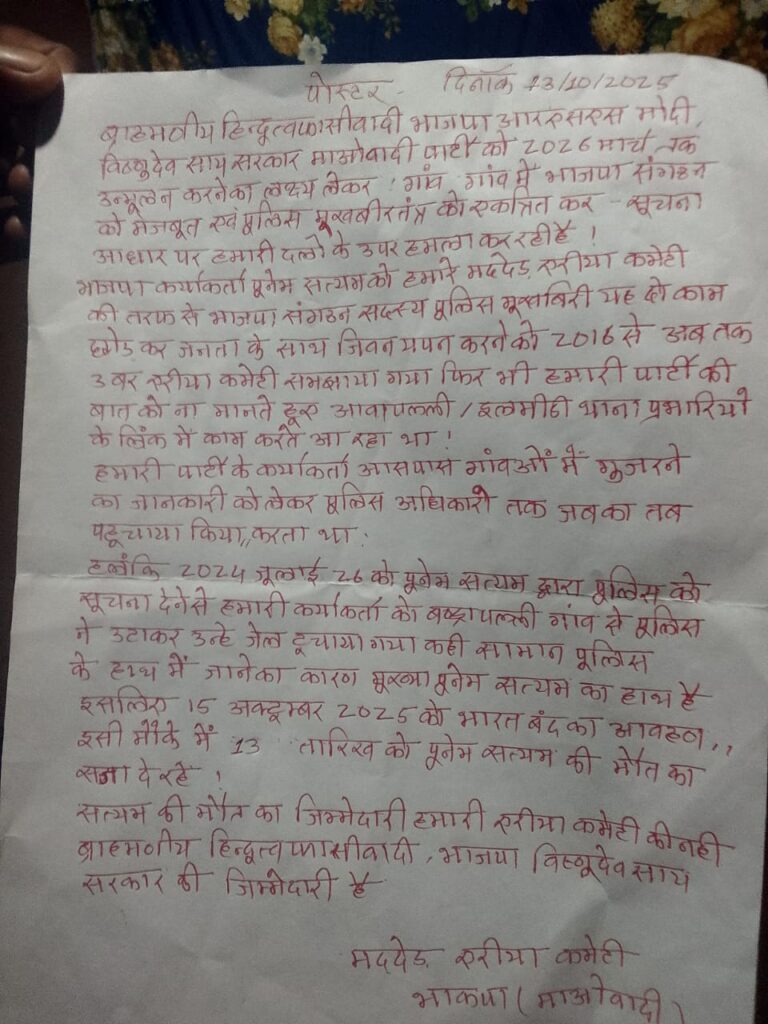 पोस्टर - दिनाँक 13/10/2025
ब्राहमणीय हिन्दुत्वफासीवादी भाजपा आरएसएस मोदी,
विष्णुदेव साय सरकार माओवादी पार्टी को 2026 मार्च तक
उन्मूलन करनेका लक्ष्य लेकर ! गांव गांव में भाजपा संगठन
को मजबूत एवं पुलिस मूखबीरतंत्र को एकत्रित कर - सूचना
आधार पर हमारी दलों के उपर हमला कर रही है !
भाजपा कर्याकर्ता पूनेम सत्यम को हमारे मददेड़ एरीया कमेटी
की तरफ से भाजपा संगठन सदस्य पुलिस मूखबिरी यह दो काम
छोड कर जनता के साथ जिवन यपन करने को 2016 से अब तक
3 बर एरीया कमेटी समझाया गया फिर भी हमारी पार्टी की
बात को ना मानते हूए आवापल्ली / इलमीडी थाना प्रभारियों
के लिंक में काम करते आ रहा था !
हमारी पार्टी के कर्याकर्ता आसपास गांवओं में गूजरने
का जानकारी को लेकर पुलिस अधिकारी तक जबका तब
पहूचाया किया,,करता था.
हलंकि 2024 जूलाई 26 को पूनेम सत्यम द्वारा पुलिस को
सूचना देने से हमारी कर्याकर्ता को गांव से पुलिस
ने उटाकर उन्हे जेल टूचाया गया कही सामान पुलिस
के हाथ में जानेका कारण पूनेम सत्यम का हाथ है
इसलिए 15 अक्टूम्बर 2025 को भारत बंद का आवहण,,
इसी मौके में 13 तारिख को पूनेम सत्यम की मौत का
सजा दे रहे !
सत्यम की मौत का जिम्मेदारी हमारी एरीया कमेटी की नही
ब्राहमणीय हिन्दुत्व फासीवादी, भाजपा विष्णूदेव साय
सरकार की जिम्मेदारी है
मददेड़ एरीया कमेटी
भाकपा (माओवादी)